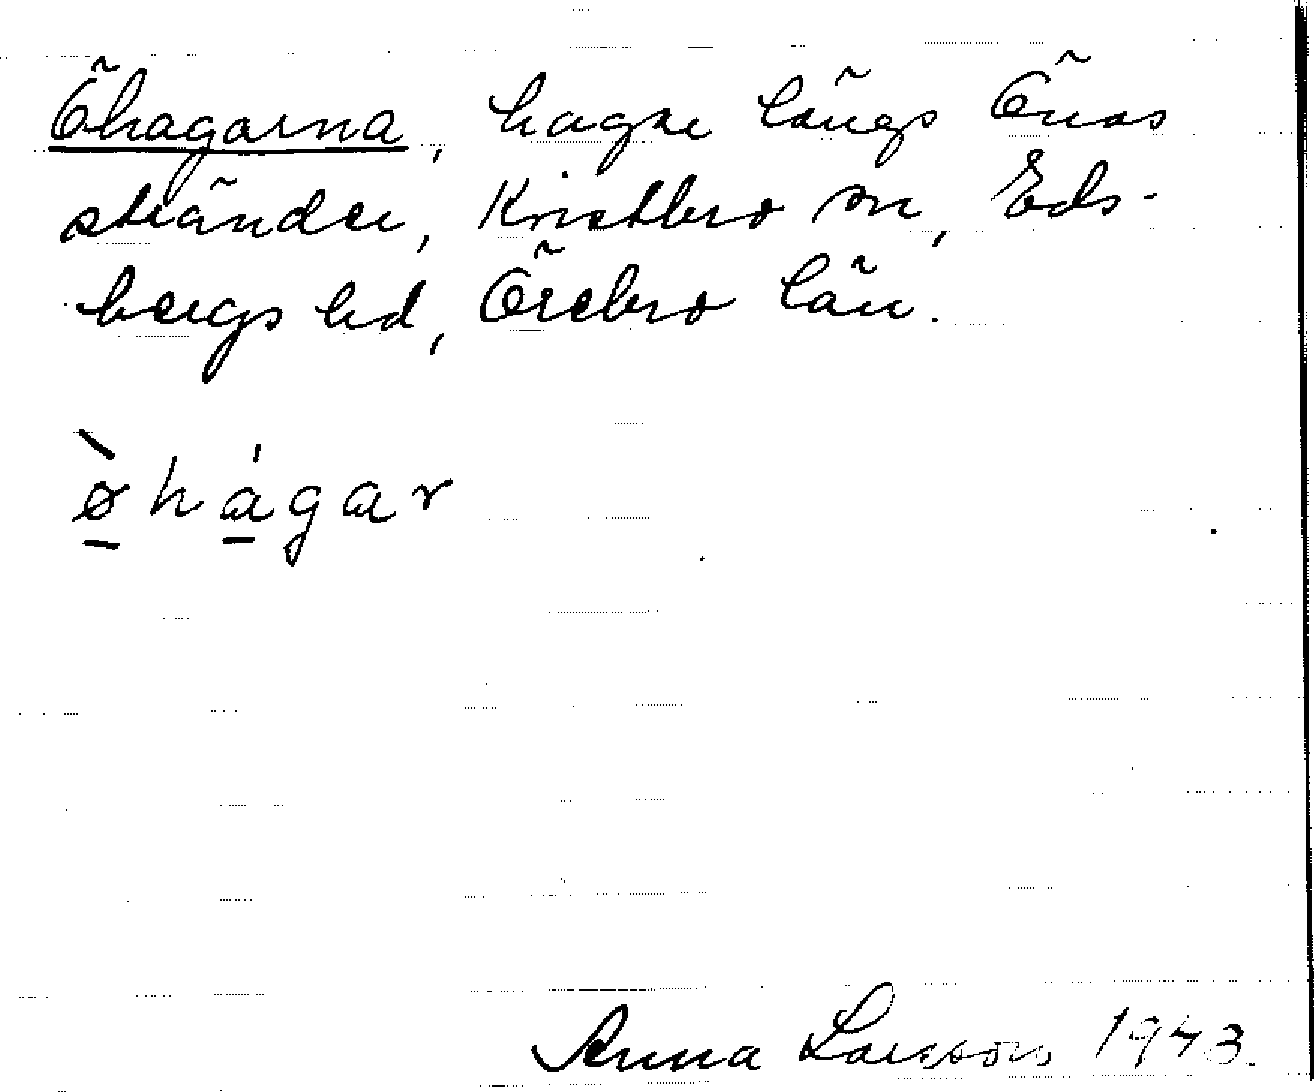 Öhagarna, hagar längs Önas
stränder, Kvistbro sn, Eds-
bergs hd, Örebro län.
ø̱̀ h a̱̍ g a r
Anna Larsson 1943.